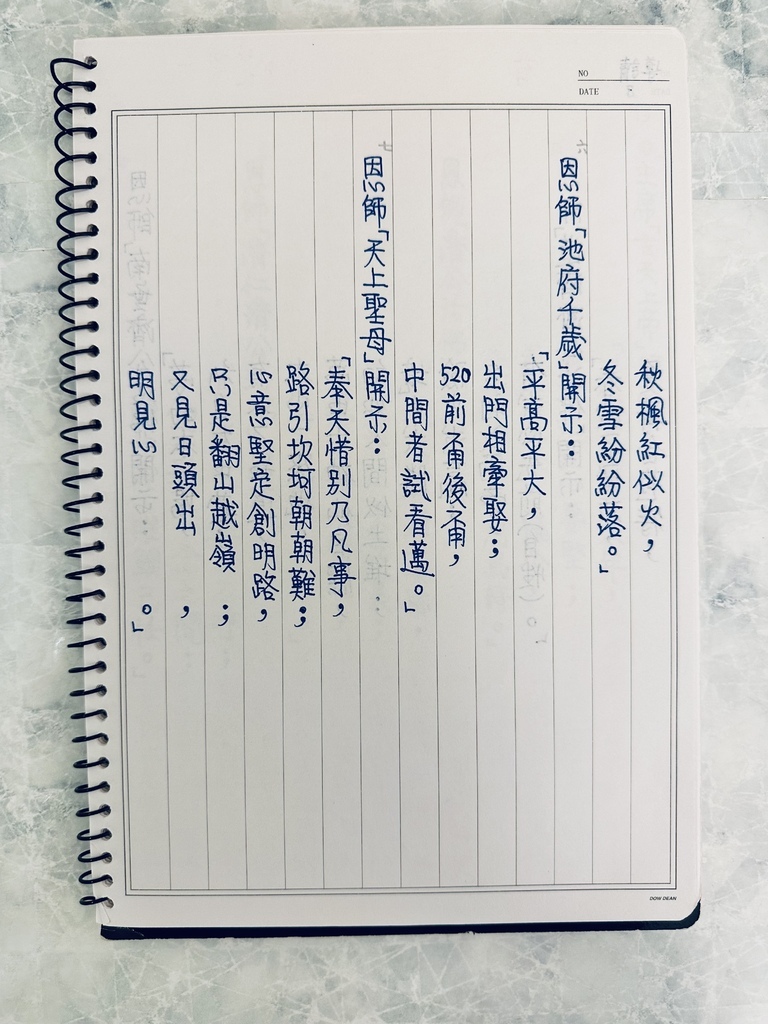 NO
DATE
秋楓紅似火，
冬雪紛紛落。」
六
恩師「池府千歲」開示：
「平高平大，
出門相牽娶；
520前甭後甭，
中間者試看邁。」
七
恩師「天上聖母」開示：
「奉天惜別乃凡事，
路引坎坷朝朝難；
心意堅定創明路，
只是翻山越嶺；
又見日頭出，
明見心。」
DOW DEAN